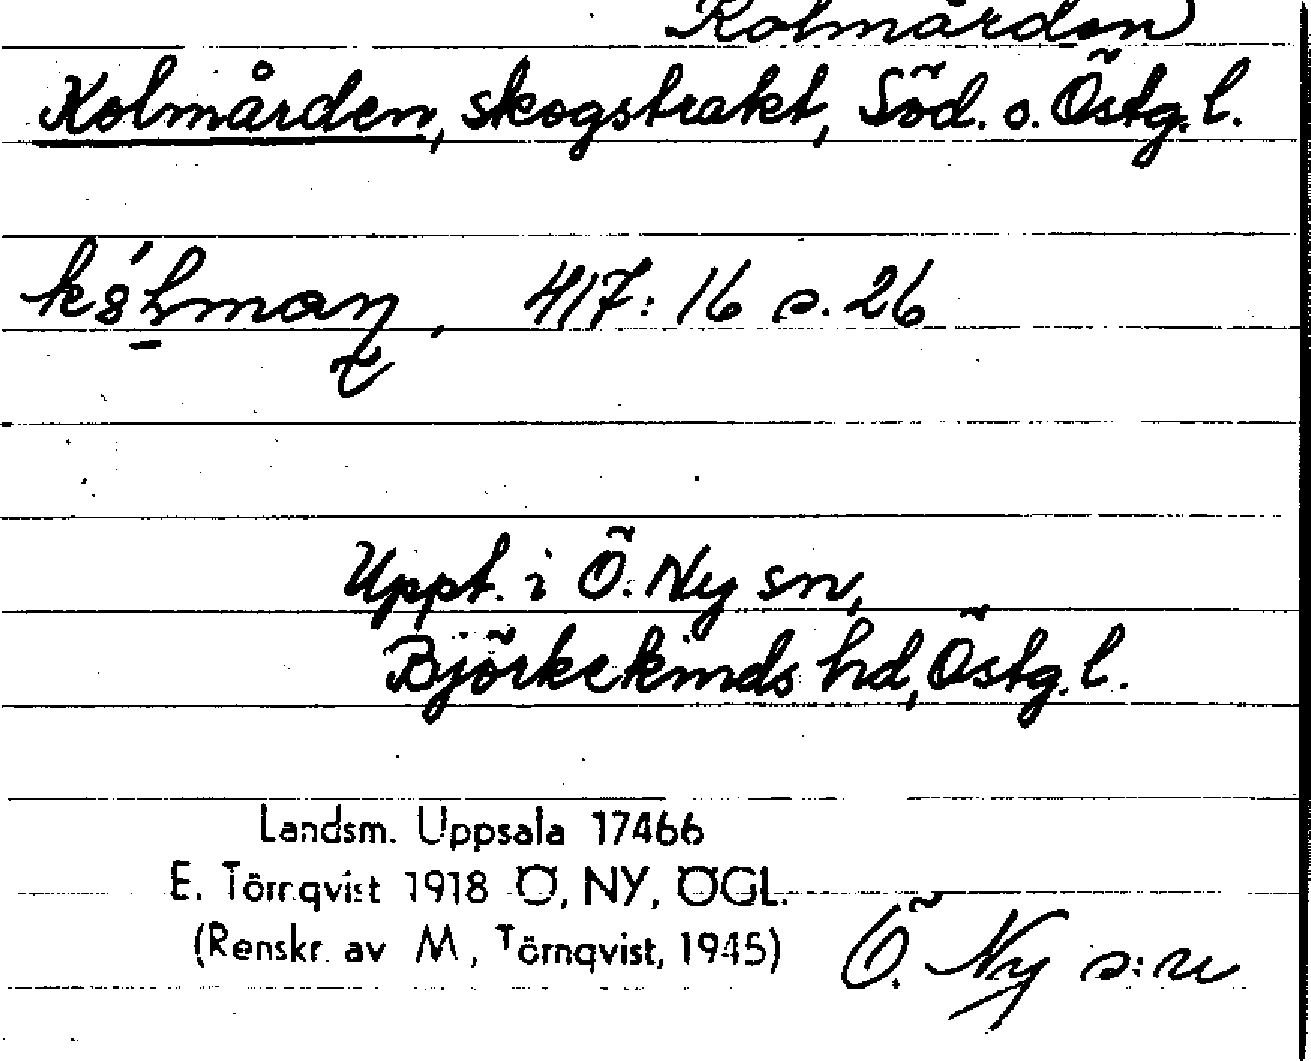 Kolmården
Kolmården, skogstrakt, Söd. o. Östg. l.
417: 16 s. 26
Uppt. i Ö. Ny sn,
Björkekinds hd, Östg. l.
Landsm. Uppsala 17466
E. Törnqvist 1918 Ö, NY, ÖGL.
(Renskr. av M, Törnqvist, 1945)
Ö. Ny s:n